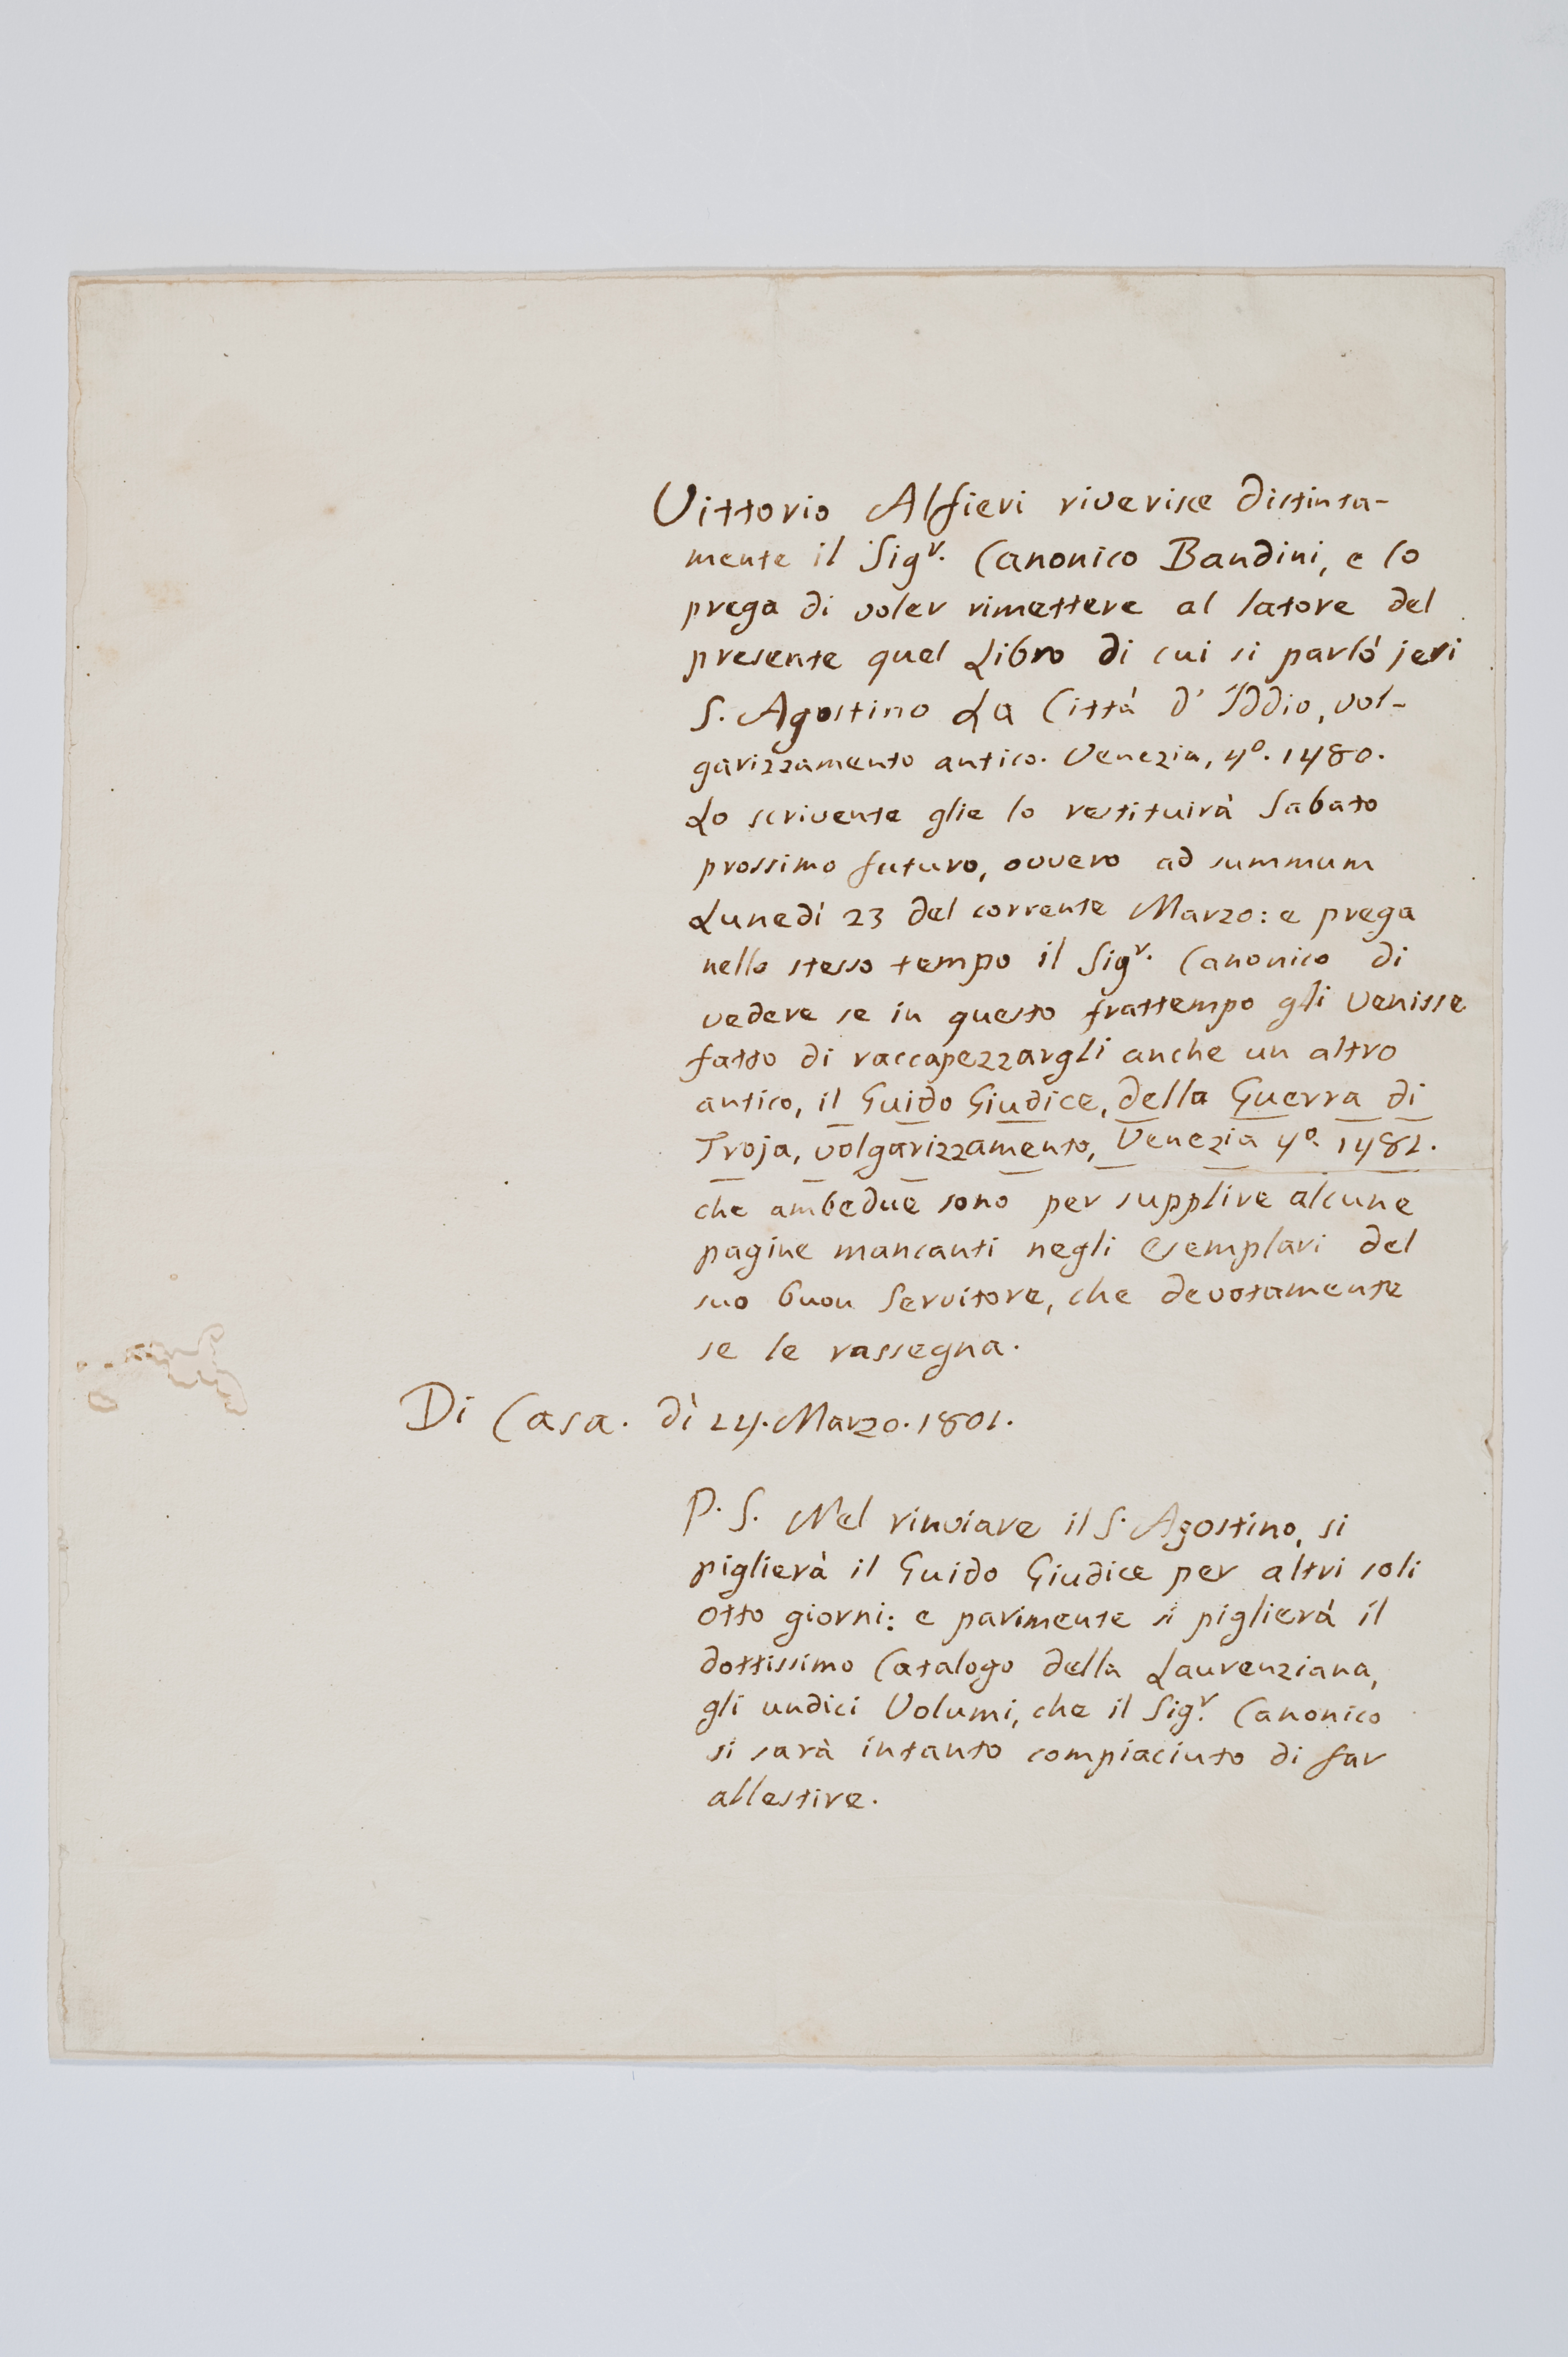 Vittorio Alfieri riverisce distinta-
mente il Sigr. Canonico Bandini, e lo
prega di voler rimettere al latore del
presente quel Libro di cui si parlò jeri
S. Agostino La Città d' Iddio, vol-
garizzamento antico. Venezia, 4o. 1480.
Lo scrivente glie lo restituirà Sabato
prossimo futuro, ovvero ad summum
Lunedì 23 del corrente Marzo: e prega
nello stesso tempo il Sigr. Canonico di
vedere se in questo frattempo gli venisse
fatto di raccapezzargli anche un altro
antico, il Guido Giudice, della Guerra di
Troja, volgarizzamento, Venezia 4o. 1481.
che ambedue sono per supplire alcune
pagine mancanti negli esemplari del
suo buon Servitore, che devotamente
se le rassegna.
Di Casa. dì 14. Marzo. 1801.
P. S. Nel rinviare il S. Agostino, si
piglierà il Guido Giudice per altri soli
otto giorni: e parimente si piglierà il
dottissimo Catalogo della Laurenziana,
gli undici Volumi, che il Sigr. Canonico
si sarà intanto compiaciuto di far
allestire.